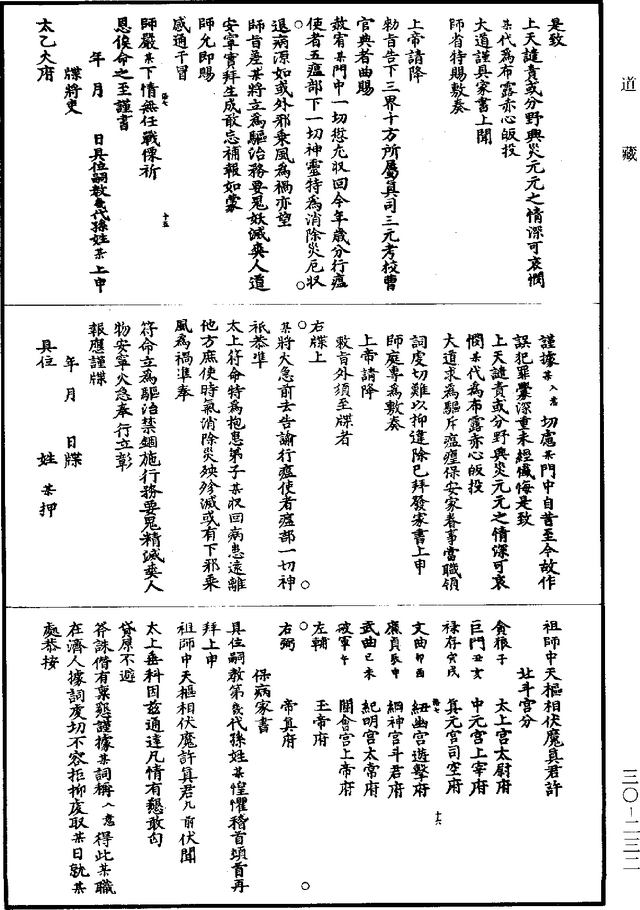 道藏
是致
上天譴責或分野興災元元之情深可哀憫
某代為布露赤心皈投
大道謹具家書上聞
師省特賜敷奏
上帝請降
勑旨告下三界十方所屬真司三元考校曹
官典者曲賜
赦宥某門中一切愆尤収回今年歲分行瘟
使者五瘟部下一切神靈特為消除災厄収
退病源如或外邪乗風為禍亦望
師旨差某將立為驅治務要鬼妖滅爽人道
安寧實拜生成敢忘補報如蒙
師允即賜
感通干冒
師嚴某下情無任戰慄祈
恩俟命之至謹書
年 月 日具位嗣教幾代孫姓某上申
牒將吏
太乙大府
十五
謹據某入意切慮某門中自昔至今故作
誤犯罪釁深重未經懺悔是致
上天譴責或分野興災元元之情深可哀
憫某代為布露赤心皈投
大道求為驅斥瘟𤺊保安家眷事當職領
詞虔切難以抑違除已拜發家書上申
師庭專為敷奏
上帝請降
敕旨外須至牒者
右牒上
某將火急前去告諭行瘟使者瘟部一切神
祇恭準
太上符命特為抱患弟子某収回病患遠離
他方庶使時氣消除災殃殄滅或有下邪乗
風為禍準奉
符命立為驅治禁錮施行務要鬼精滅爽人
物安寧火急奉行立彰
報應謹牒
年 月 日牒
具位 姓 某押
祖師中天樞相伏魔真君許
北斗宫分
貪狼子 太上宫太尉府
巨門丑亥 中元宫上宰府
祿存寅戌 真元宫司空府
文曲卯酉 紐幽宫遊擊府
十六
廉貞辰申 綱神宫斗君府
武曲巳未 紀明宫太常府
破軍午 關會宫上帝府
左輔 玉帝府
右弼 帝真府
保病家書
具位嗣教第幾代孫姓某惶懼稽首頓首再
拜上申
祖師中天樞相伏魔許真君几前伏聞
太上垂科因兹通達凡情有懇敢匄
貸原不避
斧誅僭有稟懇謹據某詞稱入意得此某職
在濟人據詞虔切不容拒抑庋取某日就某
處恭按
三〇-二三二